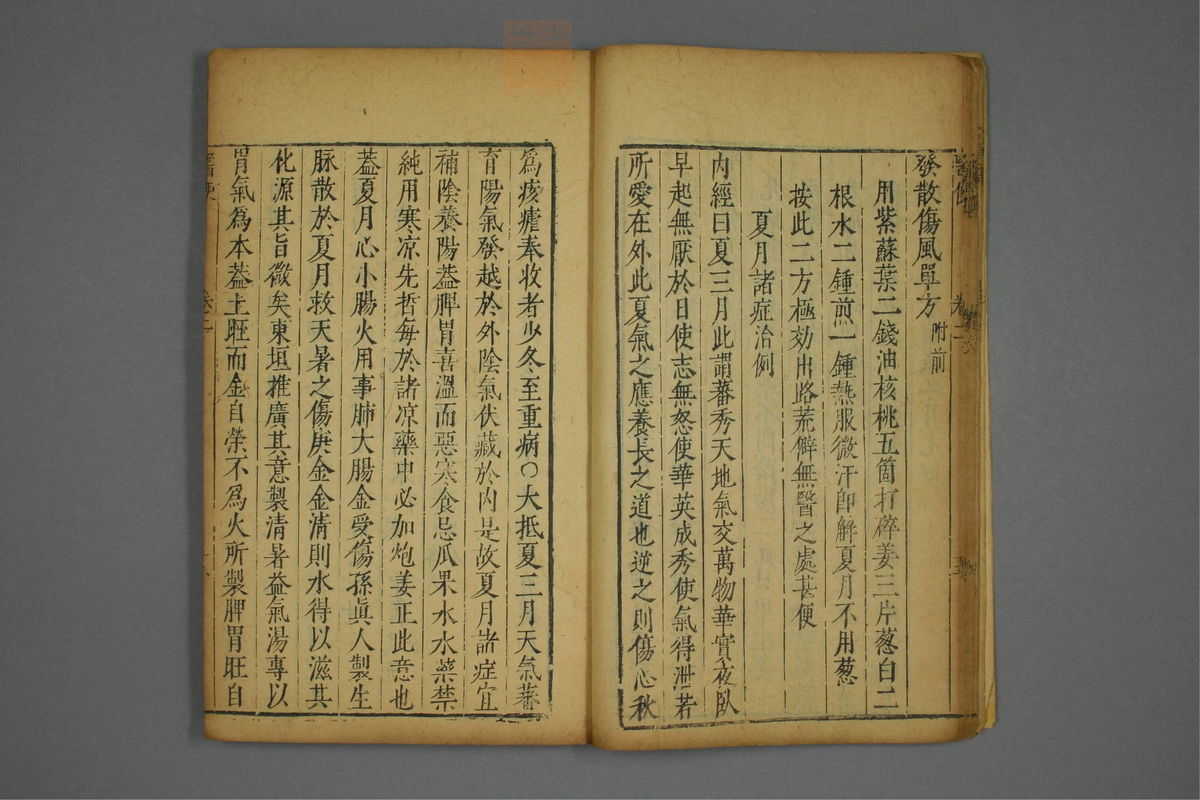 發散傷風單方 附前
用紫蘇葉二錢油核桃五箇打碎姜三片葱白二
根水二鍾煎一鍾熱服微汗卽解夏月不用葱
按此二方極効出路荒僻無醫之處甚便
夏月諸症治例
內經曰夏三月此謂蕃秀天地氣交萬物華實夜臥
早起無厭於日使志無怒使華英成秀使氣得泄若
所愛在外此夏氣之應養長之道也逆之則傷心秋
爲痎瘧奉收者少冬至重病○大抵夏三月天氣蕃
育陽氣發越於外陰氣伏藏於內是故夏月諸症宜
補陰養陽蓋脾胃喜溫而惡寒食忌瓜果水冰藥禁
純用寒凉先哲每於諸凉藥中必加炮姜正此意也
蓋夏月心小腸火用事肺大腸金受傷孫眞人製生
脉散於夏月救天暑之傷庚金金清則水得以滋其
化源其旨微矣東垣推廣其意製清暑益氣湯專以
胃氣爲本蓋土旺而金自榮不爲火所製脾胃旺自